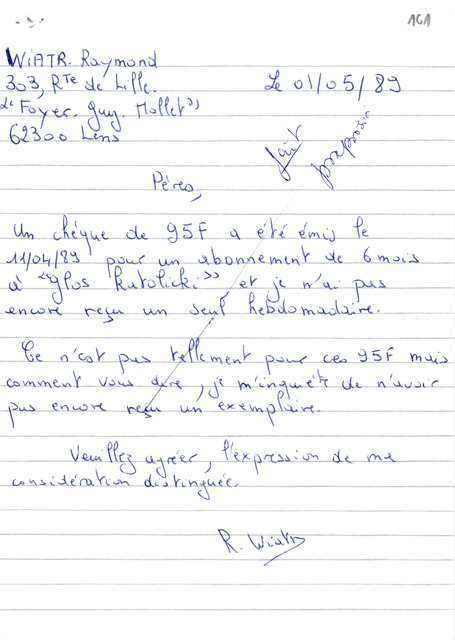 101
WIATR. Raymond
303, Rte de Lille.
Le 01/05/89
"Foyer. Guy. Mollet"
62300 Lens
fait
Pères,
Un chéque de 95F a été émis le
11/04/89 pour un abonnement de 6 mois
à "Glos Katolicki" et je n'ai pas
encore reçu un seul hebdomadaire.
Ce n'est pas tellement pour ces 95F mais
comment vous dire, je m'inquiéte de n'avoir
pas encore reçu un exemplaire.
Veuillez agréer, l'expression de ma
considération distinguée.
R. Wiatr